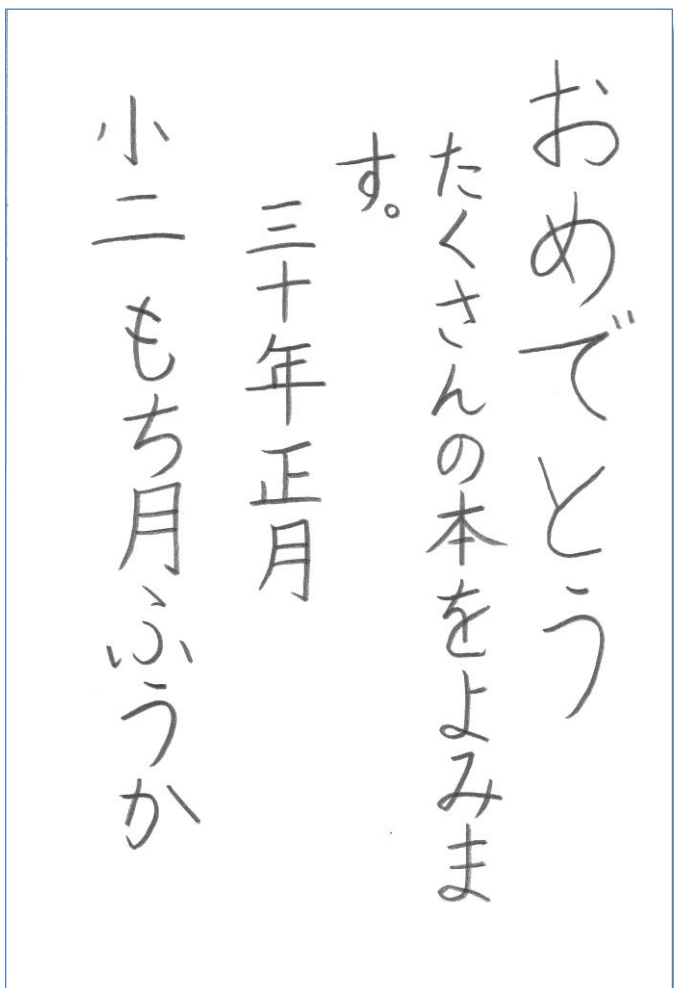 おめでとう
たくさんの本をよみま
す。
三十年正月
小二 もち月ふうか